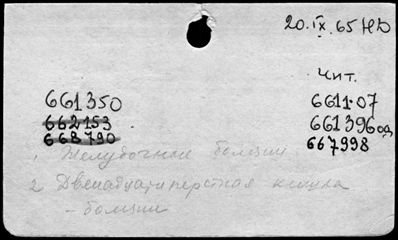 20.IX.65 НД
Чит.
661350
6611-07
662153
661396од
668790
667998
1. Желудочные болезни
2. Двенадцатиперстная кишка
- болезни